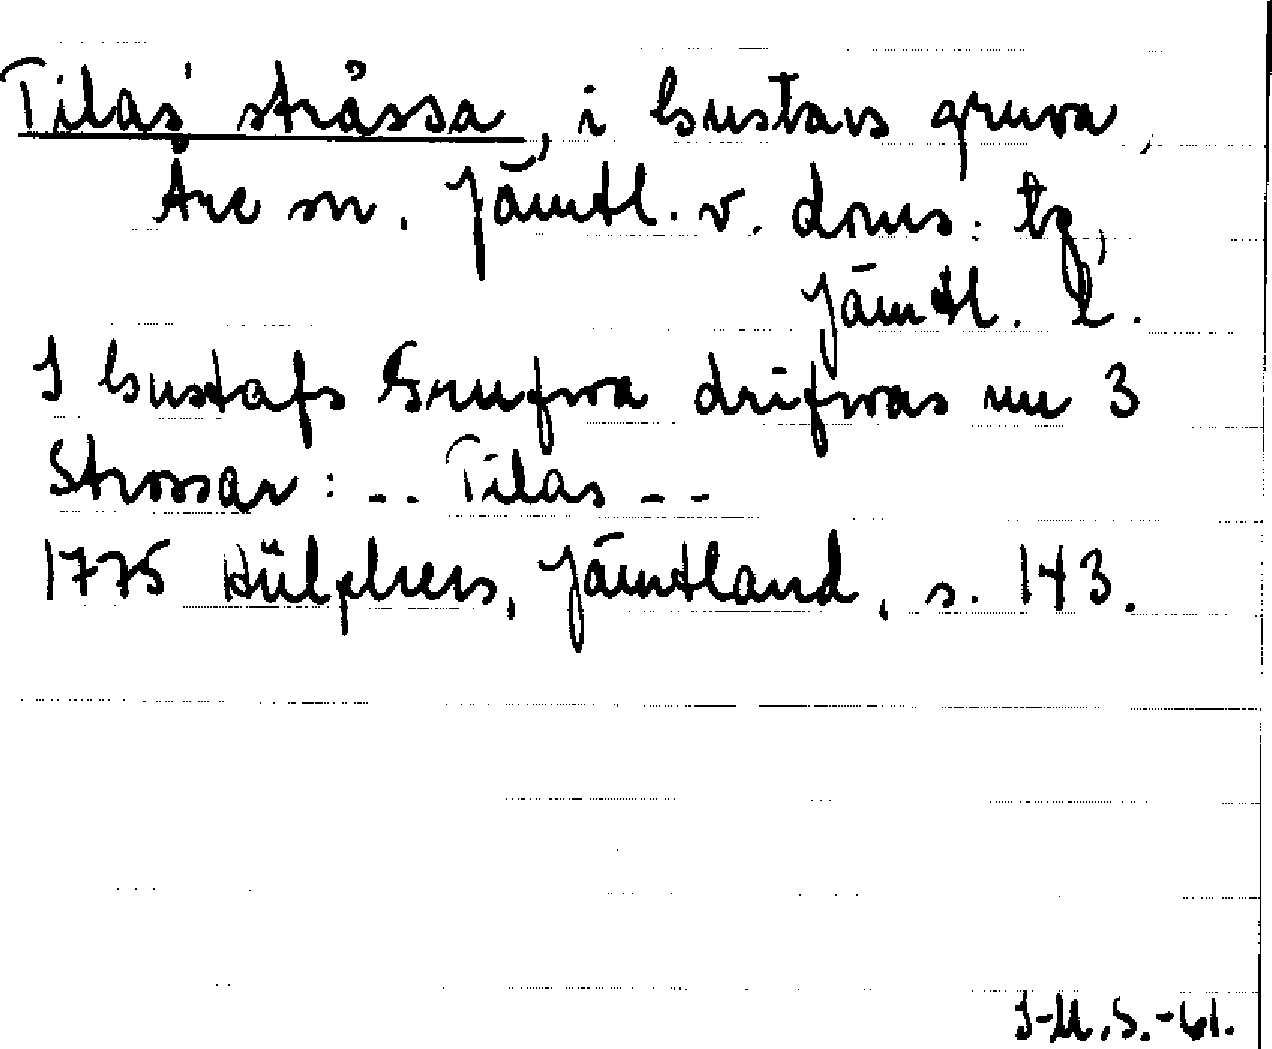 Tilas' stråssa, i Gustavs gruva,
Åre sn. Jämtl. v. doms: tg,
Jämtl. l.
I Gustafs Grufwa drifwas nu 3
Strossar: -- Tilas --
1775 Hülphers, Jämtland, s. 143.
I-M.S.-61.